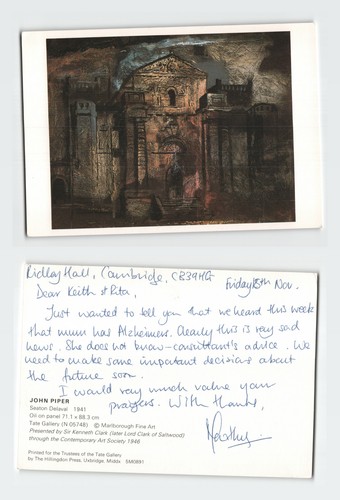 Ridley Hall, Cambridge, CB3 9HG
Friday 13th Nov.
Dear Keith & Rita,
Just wanted to tell you that we heard this week
that mum has Alzheimers. Clearly this is very sad
news. She does not know - consultant's advice. We
need to make some important decisions about
the future soon.
I would very much value your
prayers. With thanks,
JOHN PIPER
Seaton Delaval 1941
Oil on panel 71.1 x 88.3 cm
Tate Gallery (N 05748) © Marlborough Fine Art
Presented by Sir Kenneth Clark (later Lord Clark of Saltwood)
through the Contemporary Art Society 1946
Printed for the Trustees of the Tate Gallery
by The Hillingdon Press, Uxbridge, Middx SM0891